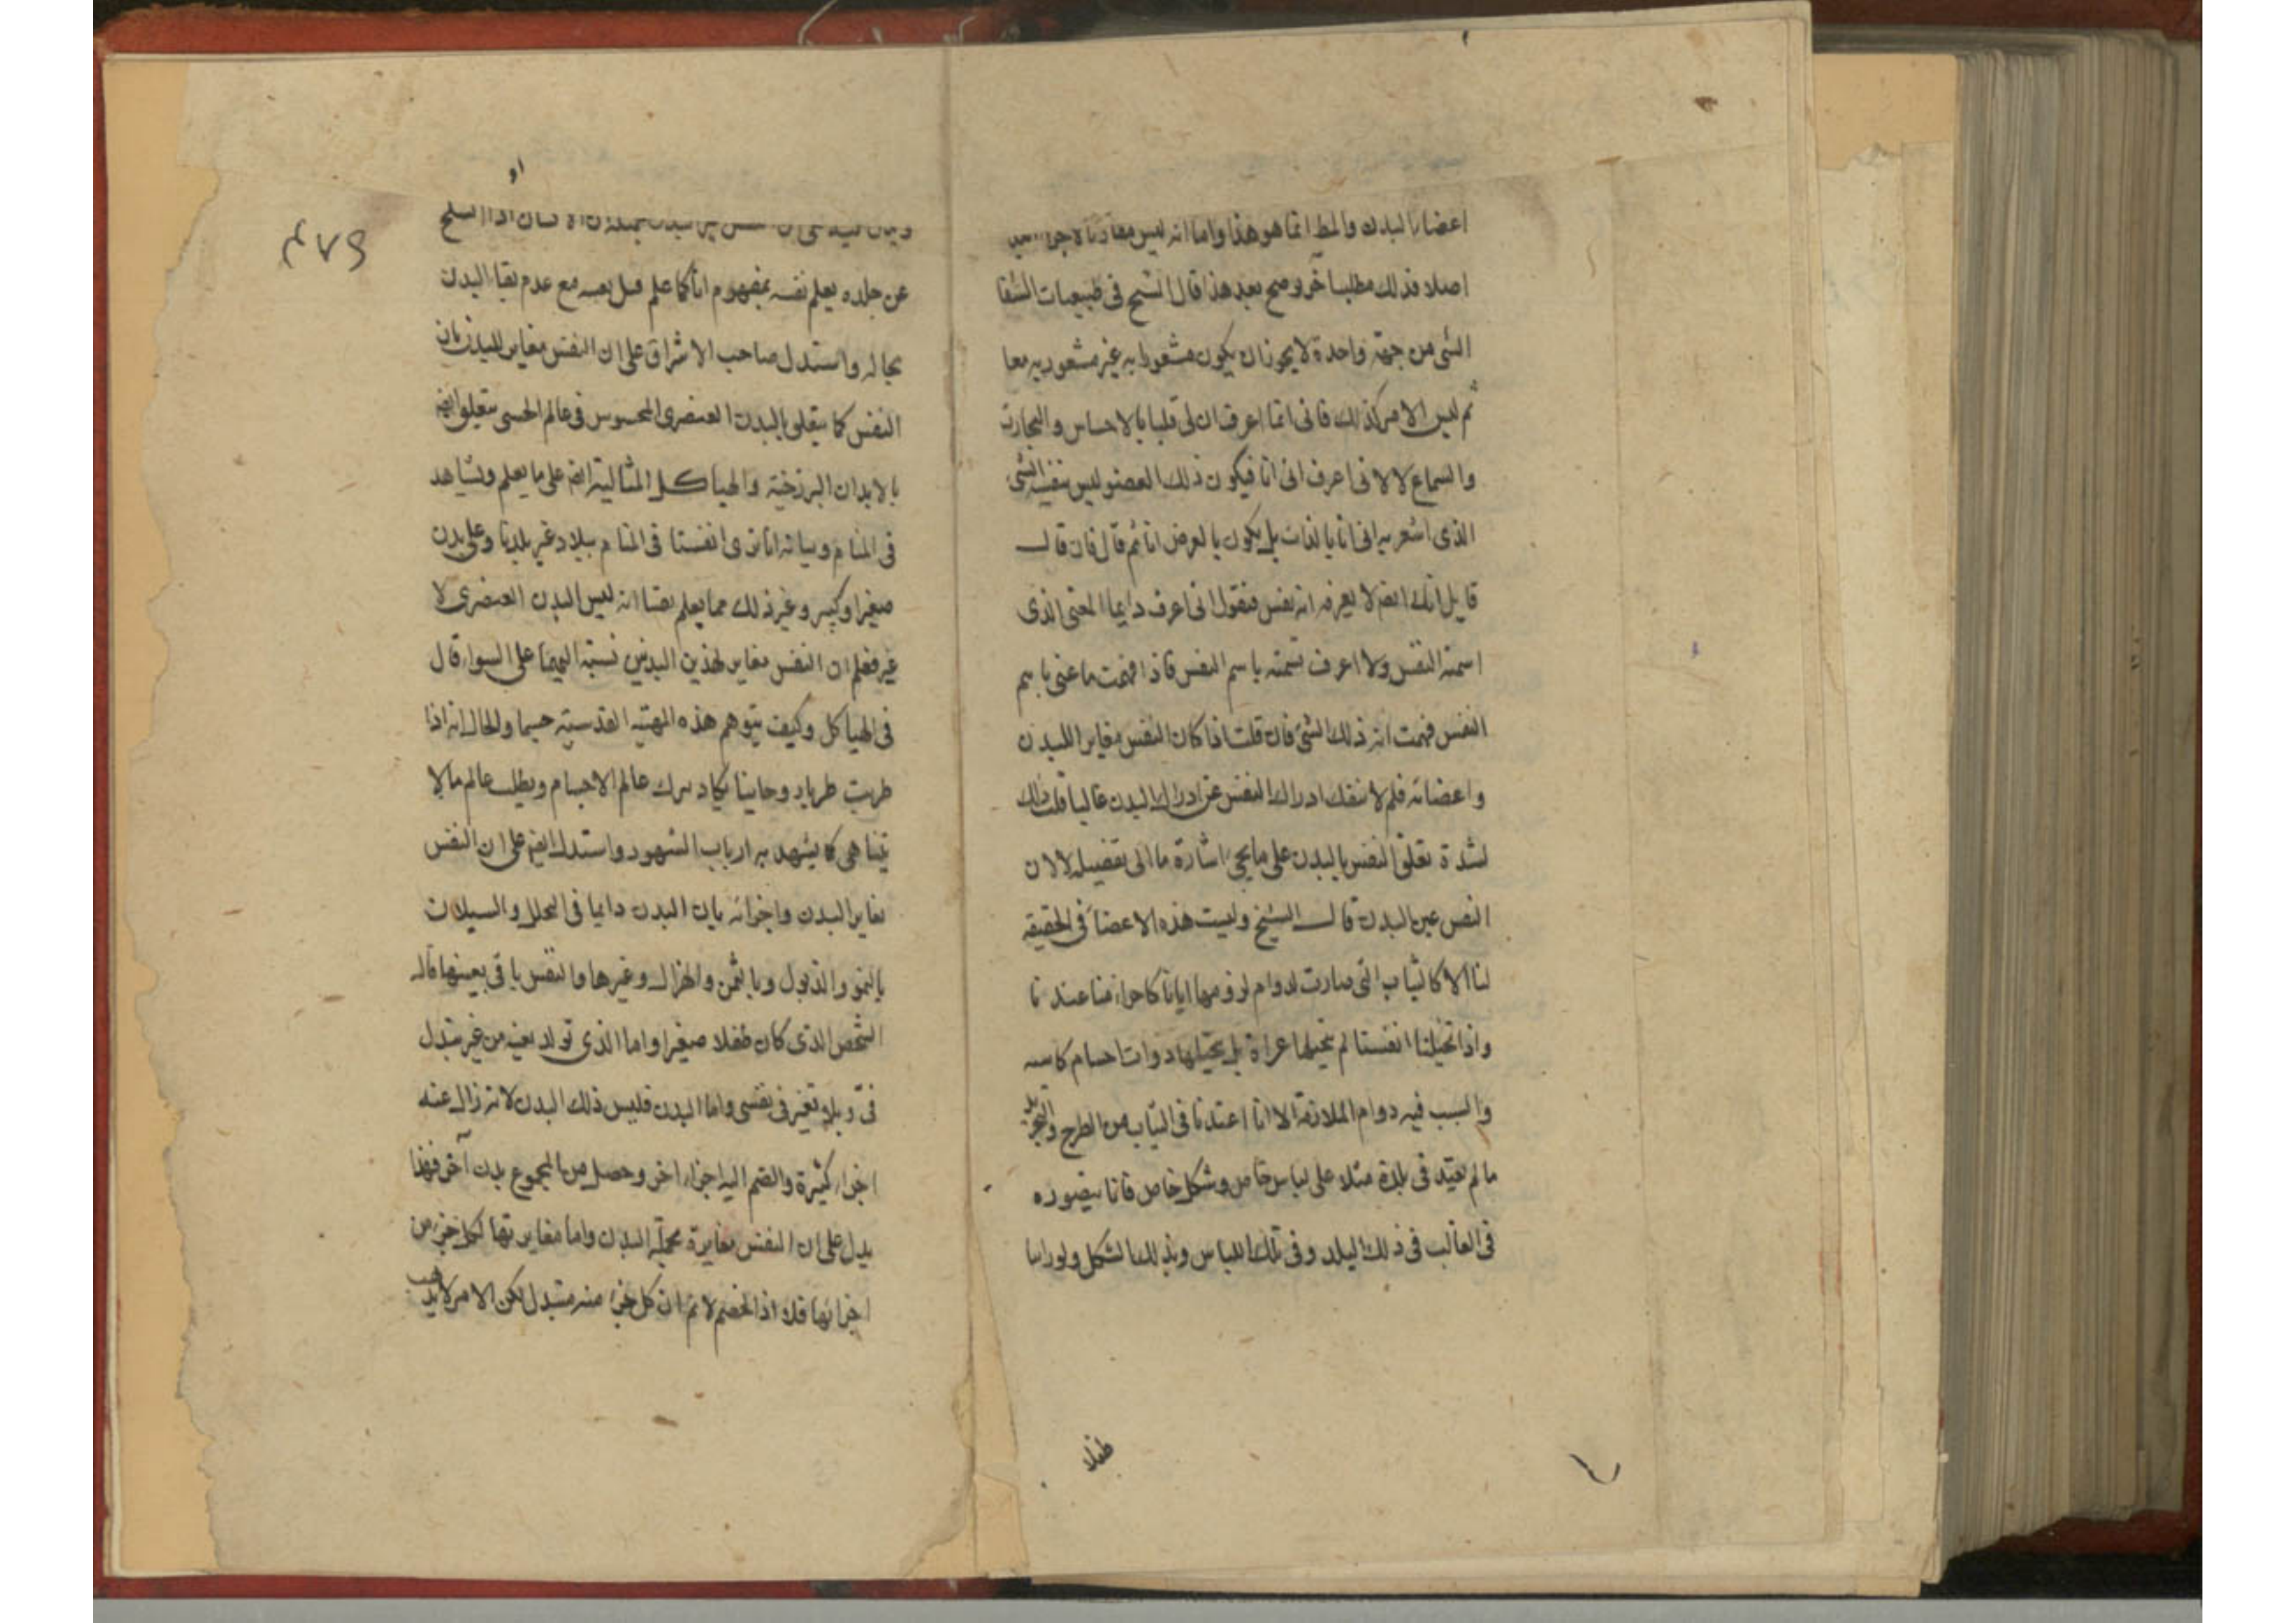 اعضاء البدن والمط انما هو هذا واما انه ليس مقارنا لاجزاء
اصلا فذلك مطلب آخر وضح بعد هذا قال الشيخ فى طبيعيات الشفا
الشى من جهة واحدة لا يجوز ان يكون مشعورا به غير مشعور به معا
ثم ليس الامر كذلك فانى انما اعرف ان لى قلبا بالاحساس والتجارت
والسماع لا لانى اعرف انى انا فيكون ذلك العضو ليس بنفسه الشى
الذى اشعر به انى انا بالذات بل يكون بالعرض انا ثم قال فان قال
قايل انك ايضا لا يعرفه انه نفس فنقول انى اعرف دايما المعنى الذى
اسمته النفس ولا اعرف تسمته باسم النفس فاذا فهمت ما عنى باسم
النفس فهمت انه ذلك الشئ فان قلت اذا كان النفس مغايرا للبدن
واعضائه فلم لا ينفك ادراك النفس عن ادراك البدن غالبا قلت ذلك
لشدة تعلق النفس بالبدن على ما يجئ اشارة ما الى تفضيله لا لان
النفس عين البدن قال الشيخ وليست هذه الاعضا فى الحقيقة
لنا الا كالثياب التى صارت لدوام لزومها ايانا كاجزاء منا عندنا
واذا تخيلنا انفسنا لم نتخيلها عراة بل نتخيلها ذوات اجسام كاسيه
والسبب فيه دوام الملازمة الا انا اعتدنا فى الثياب من الطرح والتجريد
ما لم نعتد فى بلدة مثلا على لباس خاص وشكل خاص فانا بتصوره
فى الغالب فى ذلك البلد وفى تلك اللباس وبذلك الشكل ولو راينا
طفلا
٤٧۶
او
ان الانسان اذا انسلخ
عن جلده يعلم نفسه بمفهوم انا كما علم قبل بعينه مع عدم بقا البدن
بحاله واستدل صاحب الاشراق على ان النفس مغاير للبدن بان
النفس كما يتعلق بالبدن العنصرى المحسوس فى عالم الحسى يتعلق ايضا
بالابدان البرزخية والهياكل المثالية ايضا على ما يعلم ويشاهد
فى المنام وبيانه انا نرى انفسنا فى المنام ببلاد غير بلدنا وعلى بدن
صغيرا وكبير وغير ذلك مما يعلم يقينا انه ليس البدن العنصرى لا
غير فعلم ان النفس مغاير لهذين البدنين نسبته اليهما على السواء قال
فى الهياكل وكيف يتوهم هذه المهية القدسية جسما والحال انه اذا
طربت طربا روحانيا يكاد يترك عالم الاجسام ويطلب عالم ما لا
يتناهى كما يشهد به ارباب الشهود واستدل ايضا على ان النفس
يغاير البدن واجزائه بان البدن دايما فى التحلل والسيلان
بالنمو والذبول وبالثمن والهزال وغيرها والنفس باقى بعينها قاله
الشخص الذى كان طفلا صغيرا واما الذى تولد بعينه من غير تبدل
فى وبلا تغير فى نفسى واما البدن فليس ذلك البدن لانه زال عنه
اجزاء كثيرة وانضم اليه اجزاء اخر وحصل من المجموع بدن آخر فهذا
يدل على ان النفس مغايرة بجملة البدن واما مغايرتها لكل جزء من
اجزائها فلا اذ الخصم لا ثم ان كل جزء منه متبدل لكن الامر